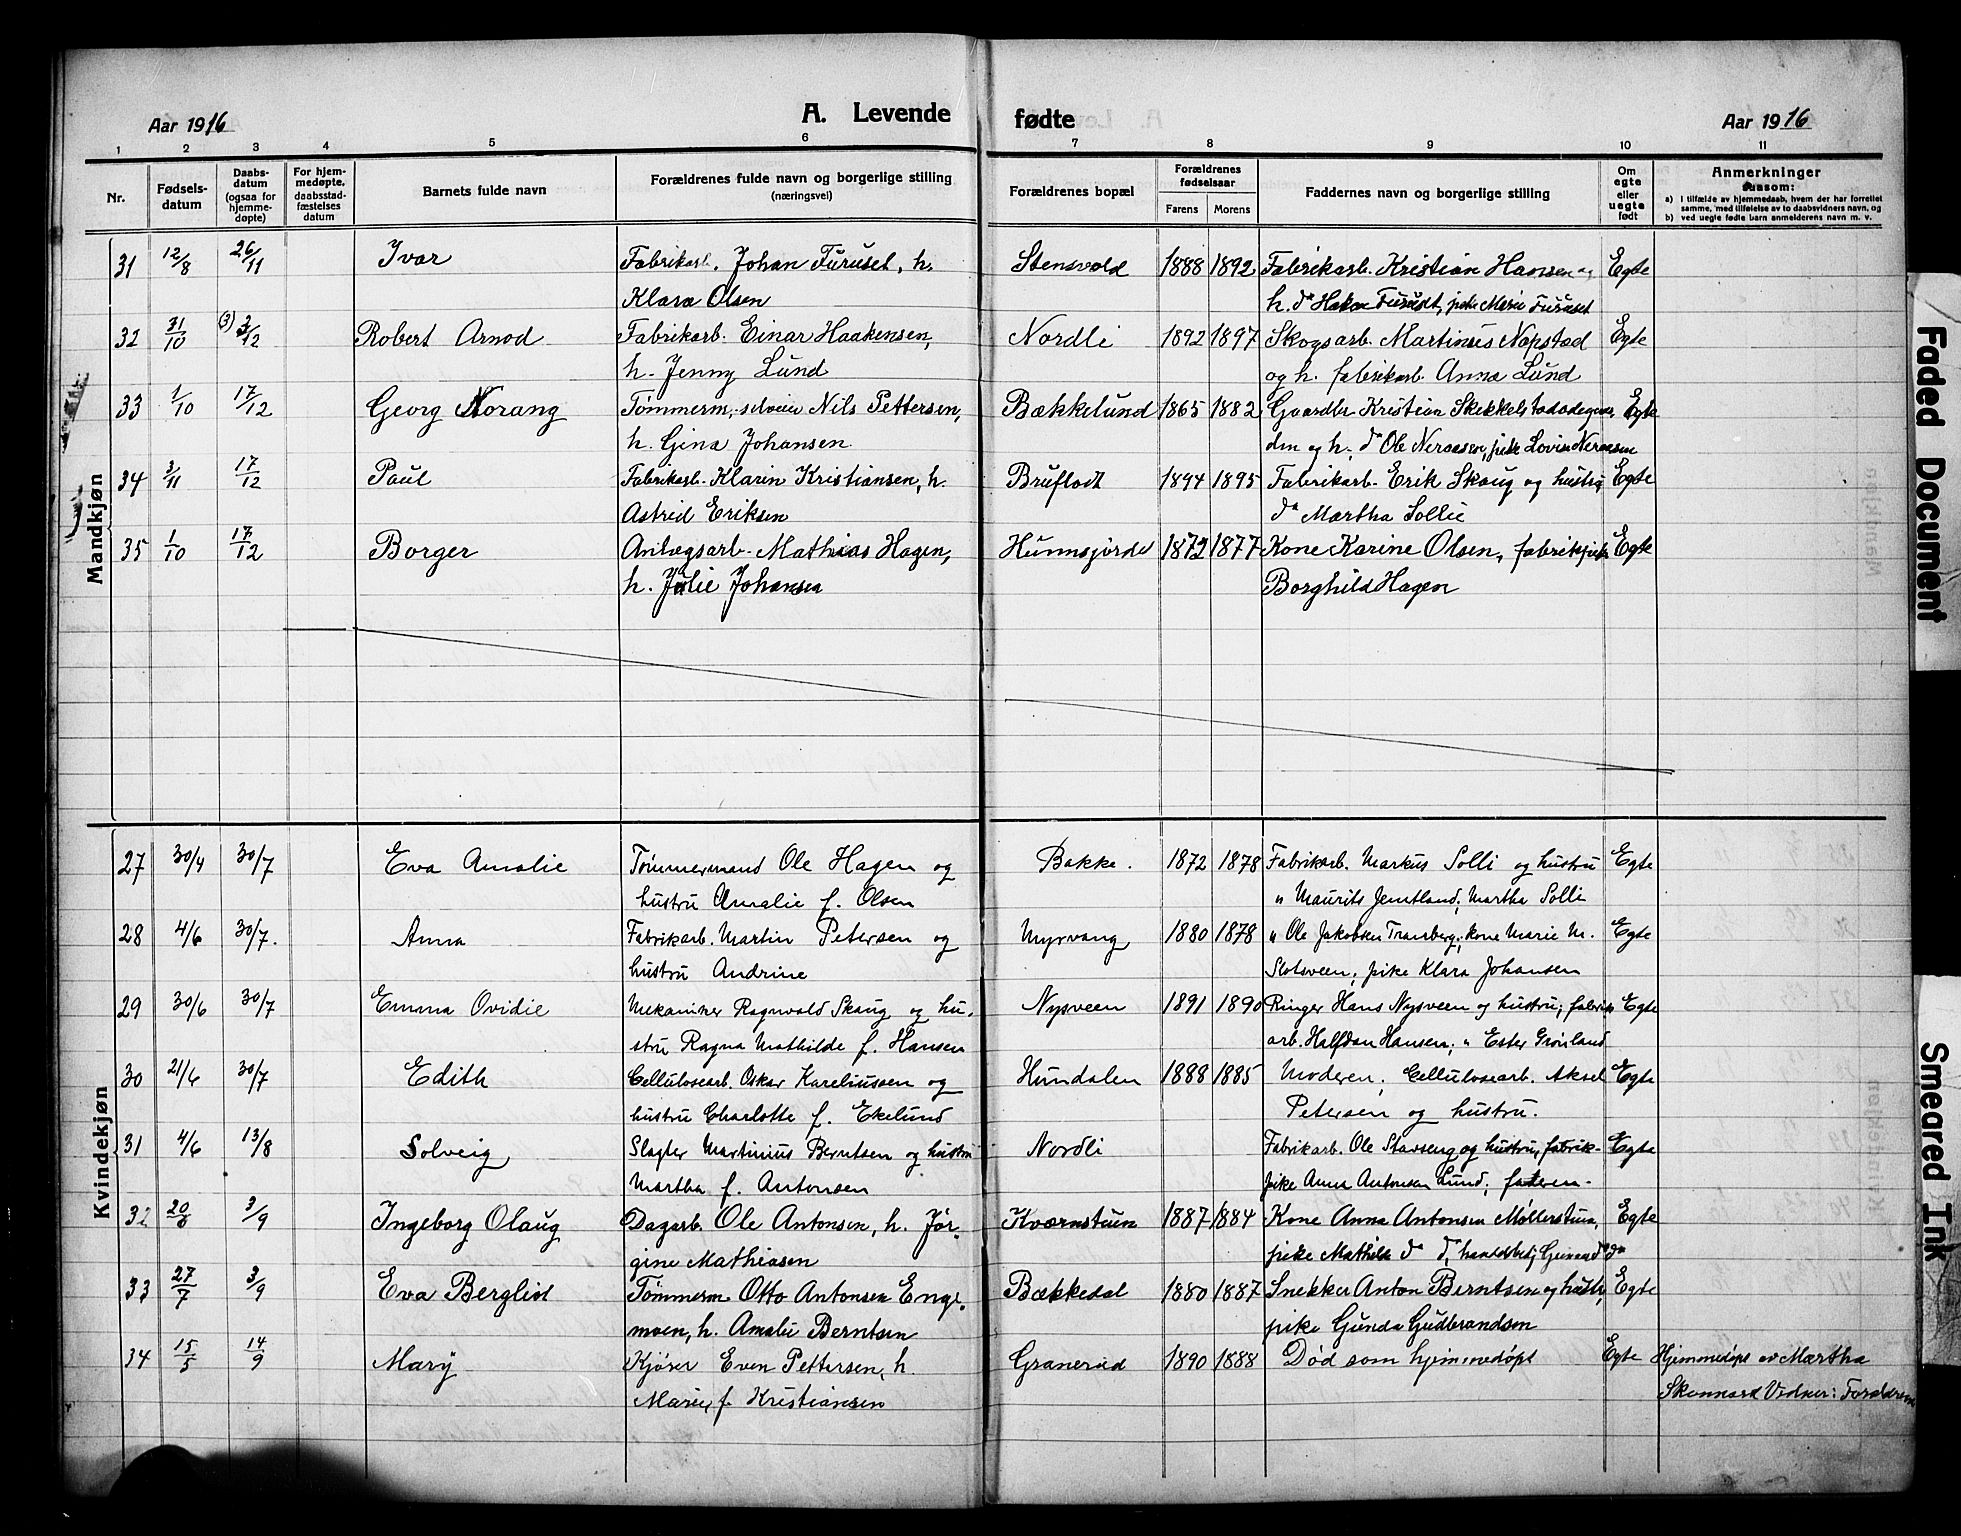 A. Levende fødte
Aar 1916
Aar 1916
1 2 3 4 5 6 7 8 9 10 11
Nr.
Fødsels-
datum
Daabs-
datum
(ogsaa for
hjemme-
døpte)
For hjem-
medøpte,
daabsstad-
fæstelses
datum
Barnets fulde navn
Forældrenes fulde navn og borgerlige stilling
(næringsvei)
Forældrenes bopæl
Forældrenes
fødselsaar
Farens Morens
Faddernes navn og borgerlige stilling
Om
egte
eller
uegte
født
Anmerkninger
saasom:
a) I tilfælde av hjemmedaab, hvem der har forrettet
samme, med tilføielse av to daabsvidners navn, og
b) ved uegte fødte barn anmelderens navn m. v.
Mandkjøn
31 12/8 26/11 Ivar Fabrikarb. Johan Furuset, h. Stensvold 1888 1892 Fabrikarb. Kristian Hansen og Egte
Klara Olsen h. do Hakon Furuset, pike Marie Furuset
32 31/10 (3) 3/12 Robert Arnod Fabrikarb. Einar Haakensen, Nordli 1892 1897 Skogsarb. Martinius Nøpstad Egte
h. Jenny Lund og h. fabrikarb. Anna Lund
33 1/10 17/12 Georg Norang Tømmerm., selveier Nils Pettersen, Bækkelund 1865 1882 Gaardbr. Kristian Egte
h. Gina Johansen og h., do Ole Neraasen, pike Lovise Neraasen
34 3/11 17/12 Paul Fabrikarb. Klarin Kristiansen, h. Bruflodt 1894 1895 Fabrikarb. Erik Skaug og hustru, Egte
Astrid Eriksen do Martha Sollie
35 1/10 17/12 Borger Anlægsarb. Mathias Hagen, Hunnsjorde 1872 1877 Kone Karine Olsen, fabrikpike Egte
h. Julie Johansen Borghild Hagen
Kvindekjøn
27 30/4 30/7 Eva Amalie Tømmermand Ole Hagen og Bakke. 1872 1878 Fabrikarb. Markus Solli og hustru Egte
hustru Amalie f. Olsen " Maurits Jemtland; Martha Solli
28 4/6 30/7. Anna Fabrikarb. Martin Petersen og Myrvang 1880 1878 " Ole Jakobsen Tranberg; kone Marie M. Egte
hustru Andrine Slotsveen; pike Klara Johansen
29 30/6 30/7 Emma Ovidie Mekaniker Ragnvald Skaug og hu- Nysveen 1891 1890 Ringer Hans Nysveen og hustru; fabrik Egte
stru Ragna Mathilde f. Hansen arb. Halfdan Hansen; " Ester Grønland
30 21/6 30/7 Edith Cellulosearb. Oskar Kareliussen og Hundalen 1888 1885 Moderen; Cellulosearb. Aksel Egte
hustru Charlotte f. Ekelund Petersen og hustru.
31 4/6 13/8 Solveig Slagter Martinius Berntsen og hustru Nordli Fabrikarb. Ole Stavseng og hustru, fabrik- Egte
Martha f. Antonsen pike Anna Antonsen Lund; faderen.
32 20/6 3/9 Ingeborg Olaug Dagarb. Ole Antonsen, h. Jør- Kværnstuen 1887 1884 Kone Anna Antonsen Møllerstuen, Egte
gine Mathiasen pike Mathilde do do,
33 27/7 3/9 Eva Bergliot Tømmerm. Otto Antonsen Enge- Bækkedal 1880 1887 Snekker Anton Berntsen og hustr., Egte
moen, h. Amalie Berntsen pike Gunda Gudbrandsen
34 15/5 14/9 Mary Kjører Even Pettersen, h. Granerud 1890 1888 Død som hjemmedøpt Egte Hjemmedøpt av Martha
Marie, f. Kristiansen Skonnord Vidner: Forældrene
Faded Document
Smeared Ink